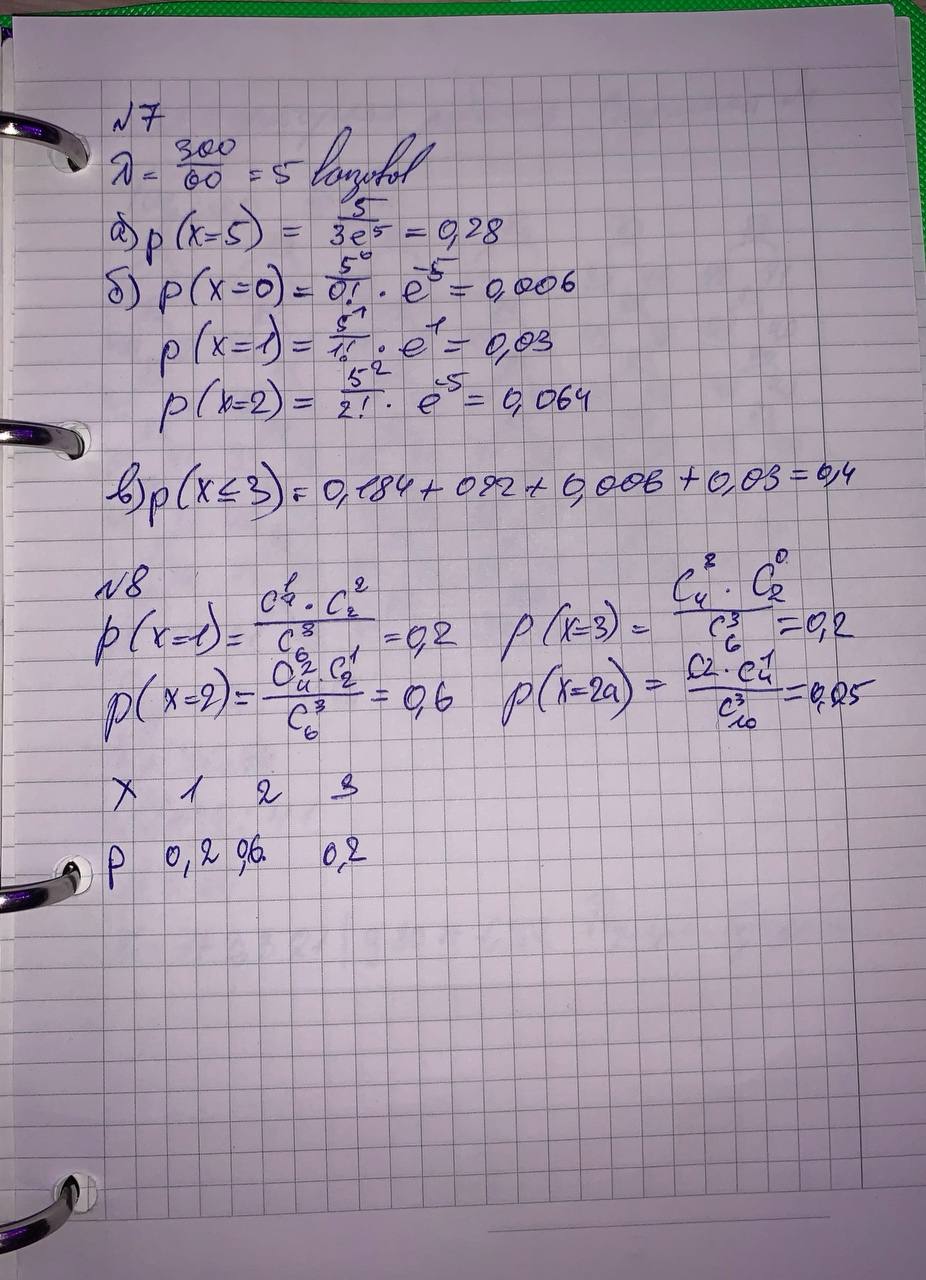 №7
λ = 300/60 = 5
а) p(x=5) = 5/3e⁵ = 0,28
б) p(x=0) = 5⁰/0! · e⁻⁵ = 0,006
p(x=1) = 5¹/1! · e¹ = 0,03
p(x=2) = 5²/2! · e⁻⁵ = 0,064
в) p(x≤3) = 0,184 + 022 + 0,006 + 0,03 = 0,4
№8
p(x=1) = C₄¹ · C₂²/C₆³ = 0,2 p(x=3) = C₄³ · C₂⁰/C₆³ = 0,2
p(x=2) = C₄² · C₂¹/C₆³ = 0,6 p(x=2a) = C₂ · C₄¹/C₁₀³ = 0,05
x 1 2 3
p 0,2 0,6 0,2